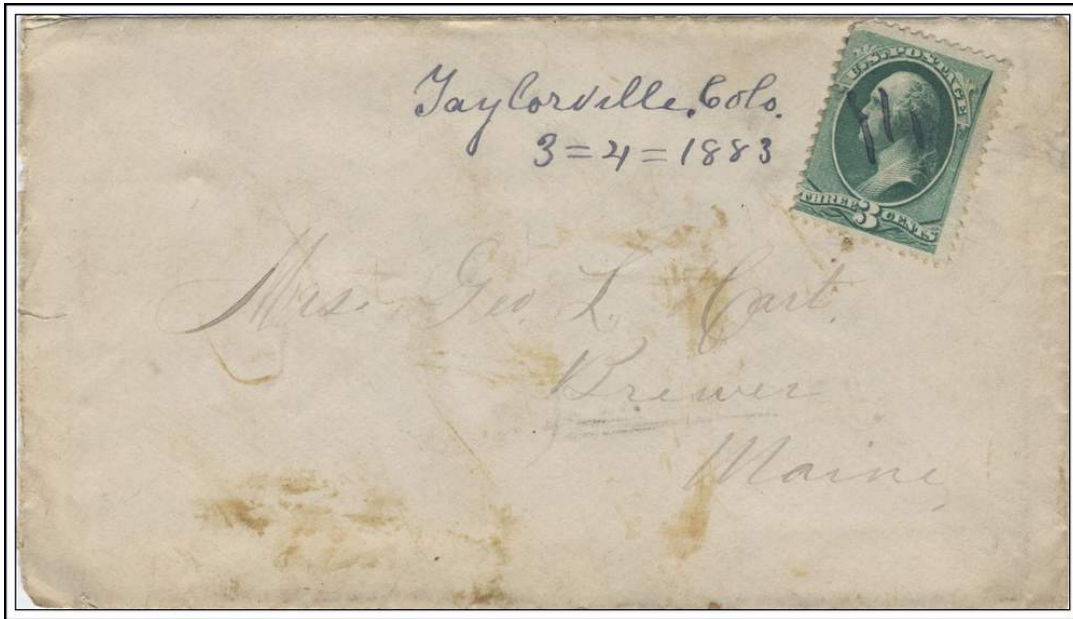 Taylorville, Colo.
3=4=1883
U.S. POSTAGE
THREE 3 CENTS
Mrs. Geo. L. Hart.
Brewer
Maine